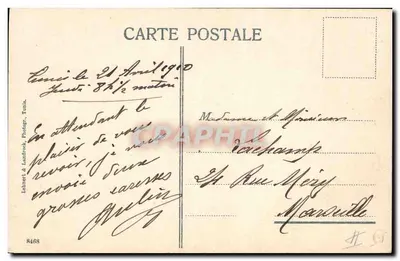 CARTE POSTALE
Tunis le 21 Avril 1910
Jeudi 8h 1/2 matin
En attendant le
plaisir de vous
revoir, je vous
envoie deux
grosses caresses
Madame et Monsieur
Lachamp
24 Rue Méry
Marseille
CPAPHIL
Lehnert & Landrock, Photogr., Tunis.
8468